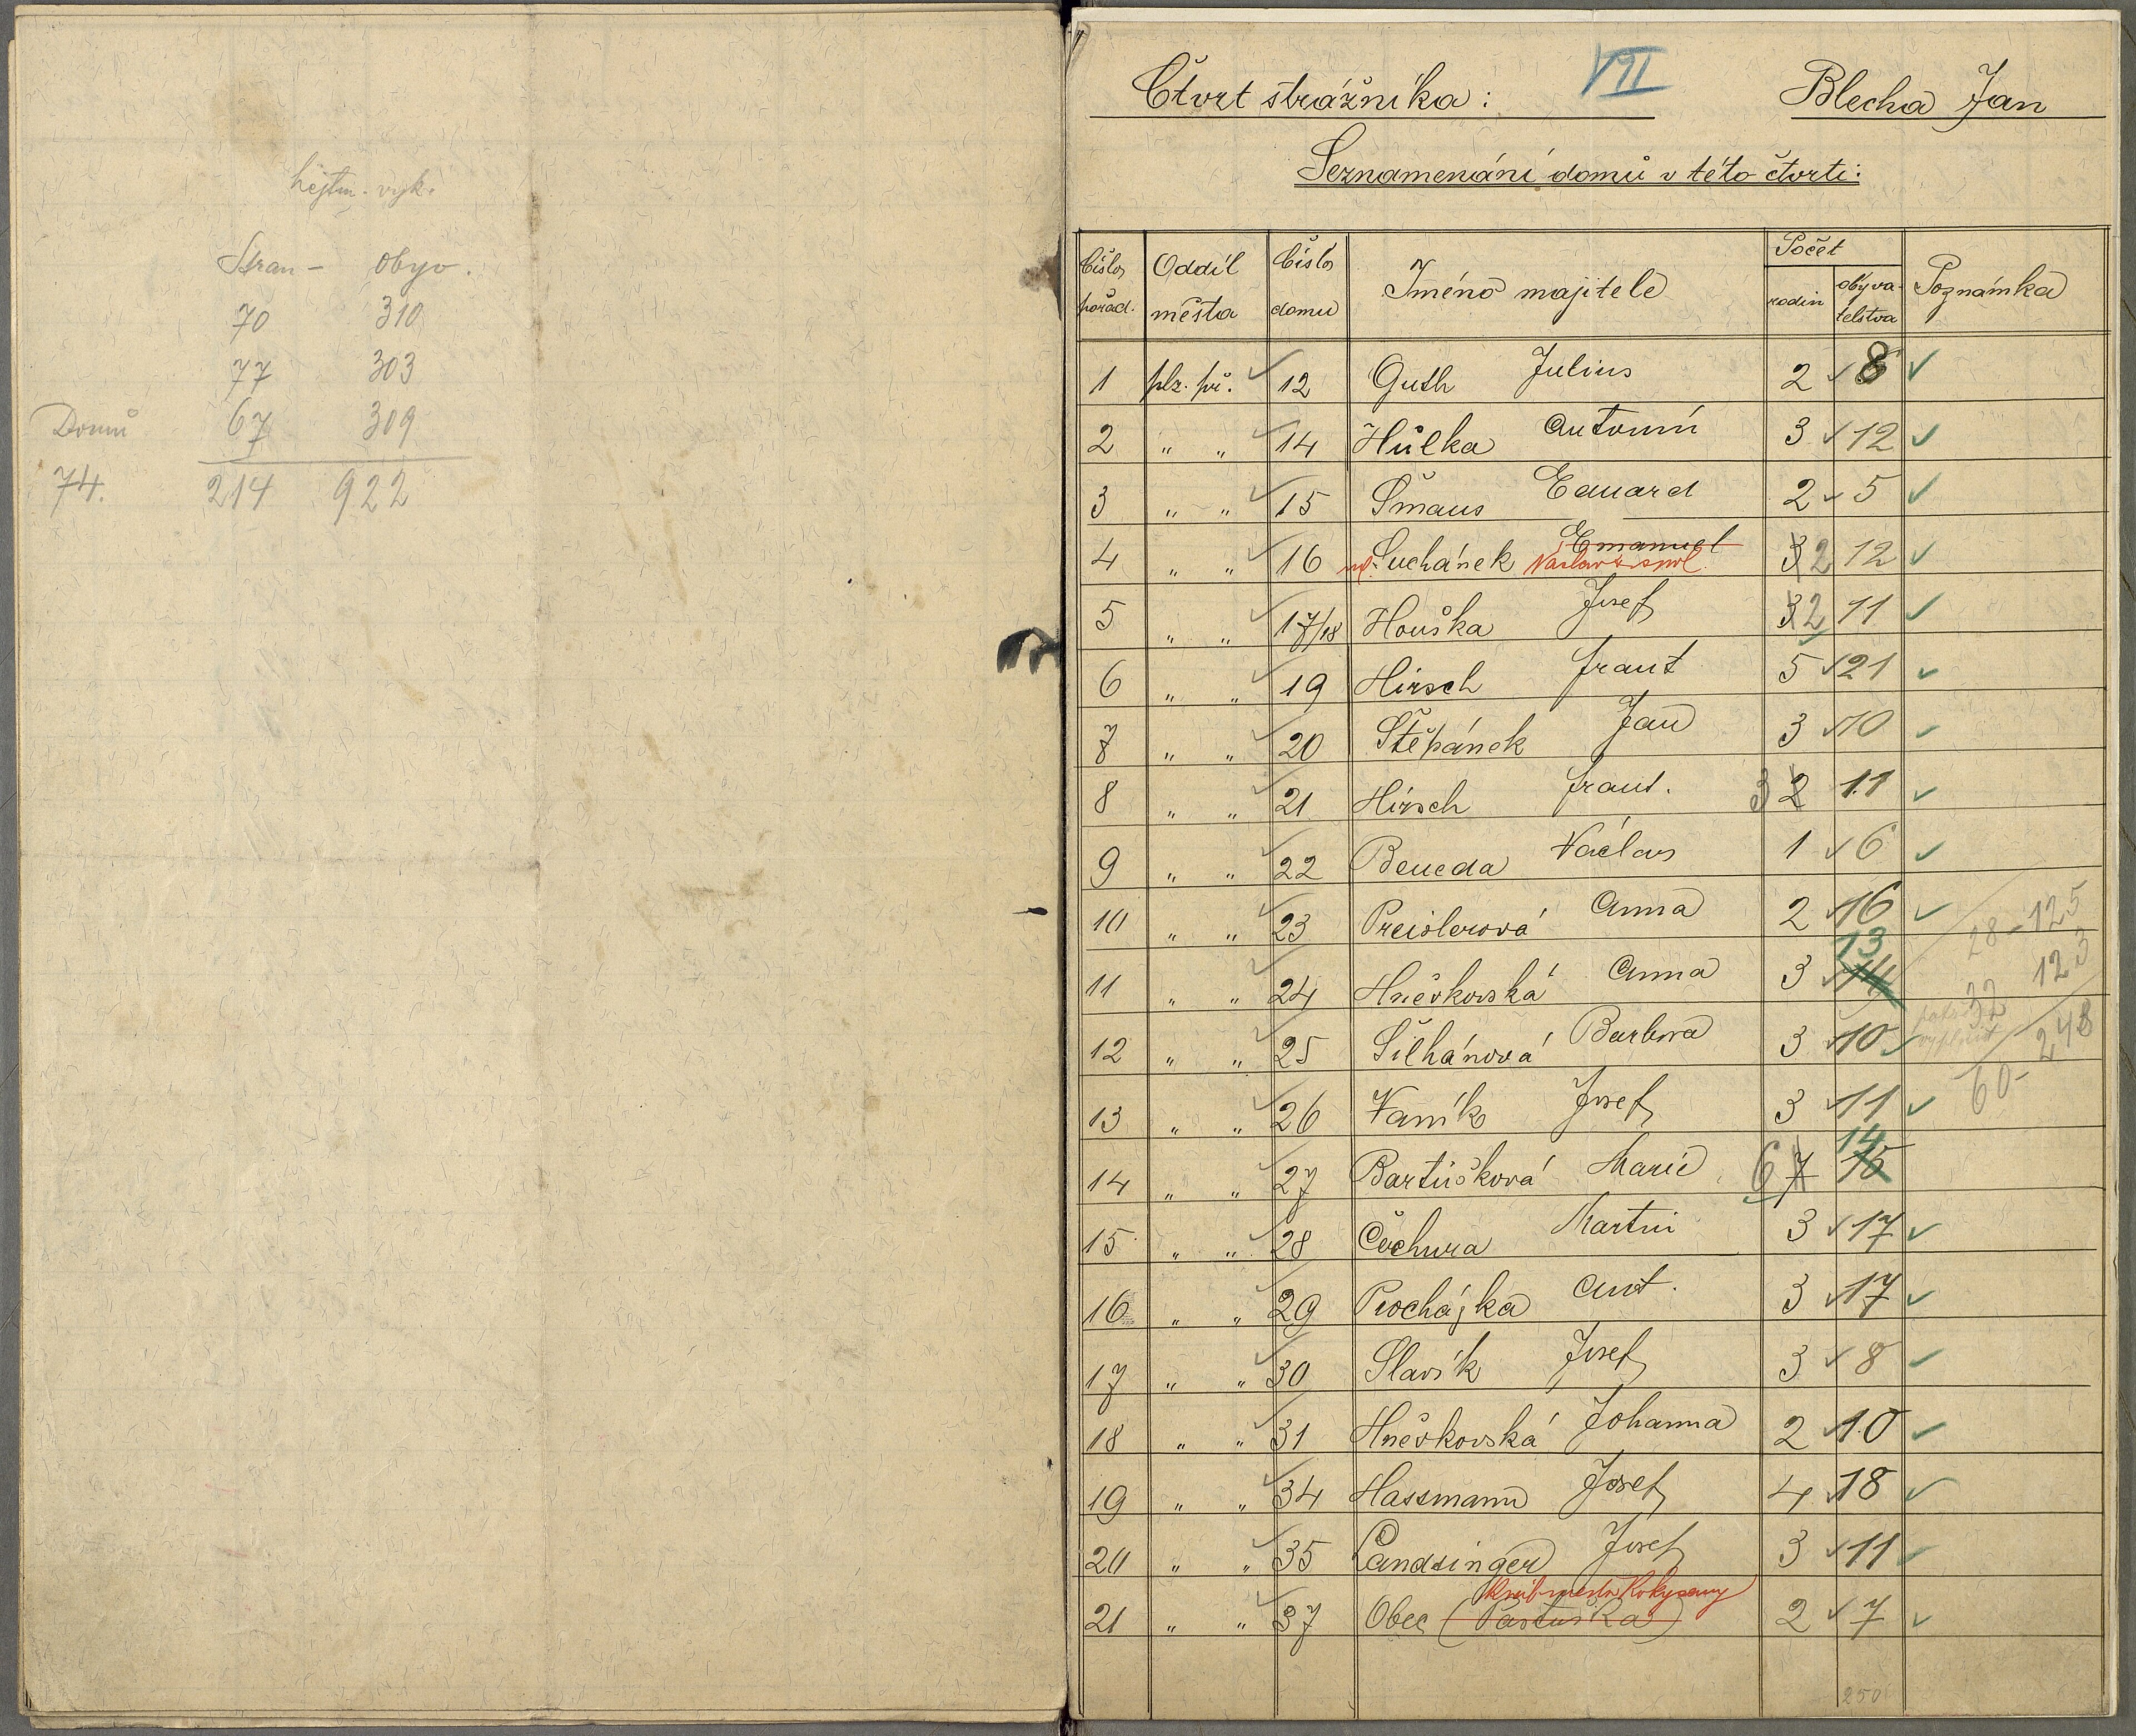 hejtm. vyk.
Stran - obyv.
70 310
77 303
Domů 67 309
74. 214 922
Čtvrt strážníka: VII Blecha Jan
Seznamenání domů v této čtvrti:
Číslo pořád. Oddíl města Číslo domu Jméno majitele Počet rodin obyvatelstva Poznámka
1 plz. př. ✓ 12 Guth Julius 2 ✓ 8 ✓
2 " " ✓ 14 Hůlka Antonín 3 ✓ 12 ✓
3 " " ✓ 15 Šmaus Eduard 2 ✓ 5 ✓
4 " " ✓ 16 Suchánek Emanuel Václav 3 2 12 ✓
5 " " ✓ 17/18 Houška Josef 3 2 11 ✓
6 " " ✓ 19 Hirsch Frant 5 ✓ 21 ✓
7 " " ✓ 20 Štěpánek Jan 3 ✓ 10 ✓
8 " " ✓ 21 Hirsch Frant. 3 2 11 ✓
9 " " ✓ 22 Beneda Václav 1 ✓ 6 ✓
10 " " ✓ 23 Preislerová Anna 2 ✓ 16 ✓ 28 - 125
11 " " ✓ 24 Hněvkovská Anna 3 ✓ 14 13 32 123
12 " " ✓ 25 Šilhánová Barbora 3 ✓ 10 ✓ 60 - 248
13 " " ✓ 26 Vaník Josef 3 ✓ 11 ✓
14 " " ✓ 27 Bartůšková Marie 6 7 15 14
15 " " ✓ 28 Čechura Martin 3 ✓ 17 ✓
16 " " ✓ 29 Procházka Ant. 3 ✓ 17 ✓
17 " " ✓ 30 Slavík Josef 3 ✓ 8 ✓
18 " " ✓ 31 Hněvkovská Johanna 2 ✓ 10 ✓
19 " " ✓ 34 Hassmann Josef 4 ✓ 18 ✓
20 " " ✓ 35 Landsinger Josef 3 ✓ 11 ✓
21 " " ✓ 37 Obec (Pastuška) města Rokycany 2 ✓ 7 ✓
250